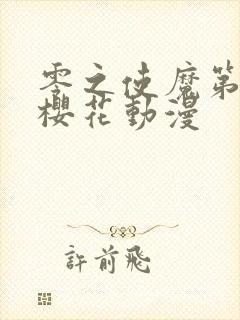 零之使魔第
櫻花動漫
許前飛